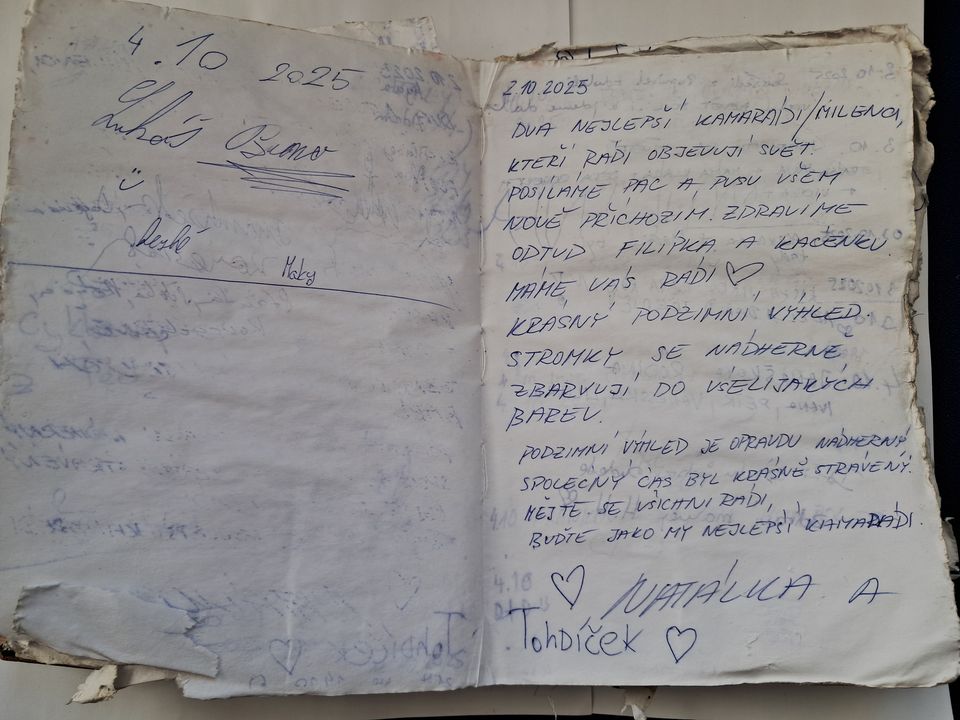 4.10 2025
Lukáš Bruno
Maky
2.10.2025
DVA NEJLEPŠÍ KAMARÁDI/MILENCI,
KTEŘÍ RÁDI OBJEVUJÍ SVĚT.
POSÍLÁME PAC A PUSU VŠEM
NOVĚ PŘÍCHOZÍM. ZDRAVÍME
ODTUD FILÍPKA A KAČENKU.
MÁME VÁS RÁDI ♡
KRÁSNÝ PODZIMNÍ VÝHLED.
STROMKY SE NÁDHERNĚ
ZBARVUJÍ DO VŠELIJAKÝCH
BAREV.
PODZIMNÍ VÝHLED JE OPRAVDU NÁDHERNÝ
SPOLEČNÝ ČAS BYL KRÁSNĚ STRÁVENÝ.
MEJTE SE VŠICHNI RÁDI,
BUĎTE JAKO MY NEJLEPŠÍ KAMARÁDI.
♡ NATÁLKA A
TOHDÍČEK ♡